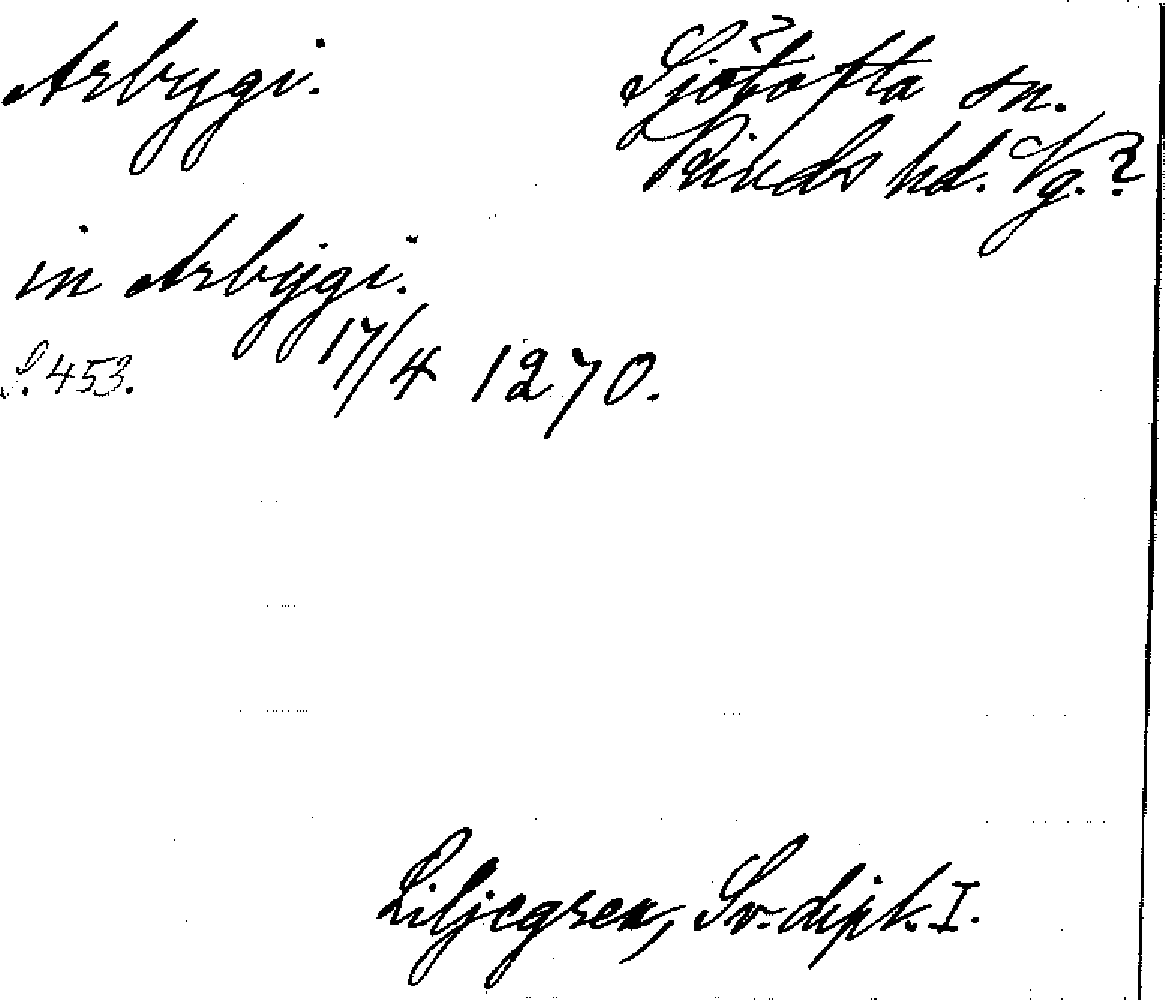 Arbygi.
Sjötofta sn.
Kinds hd. Vg.?
in Arbygi.
S. 453. 17/4 1270.
Liljegren, Sv. dipl. I.